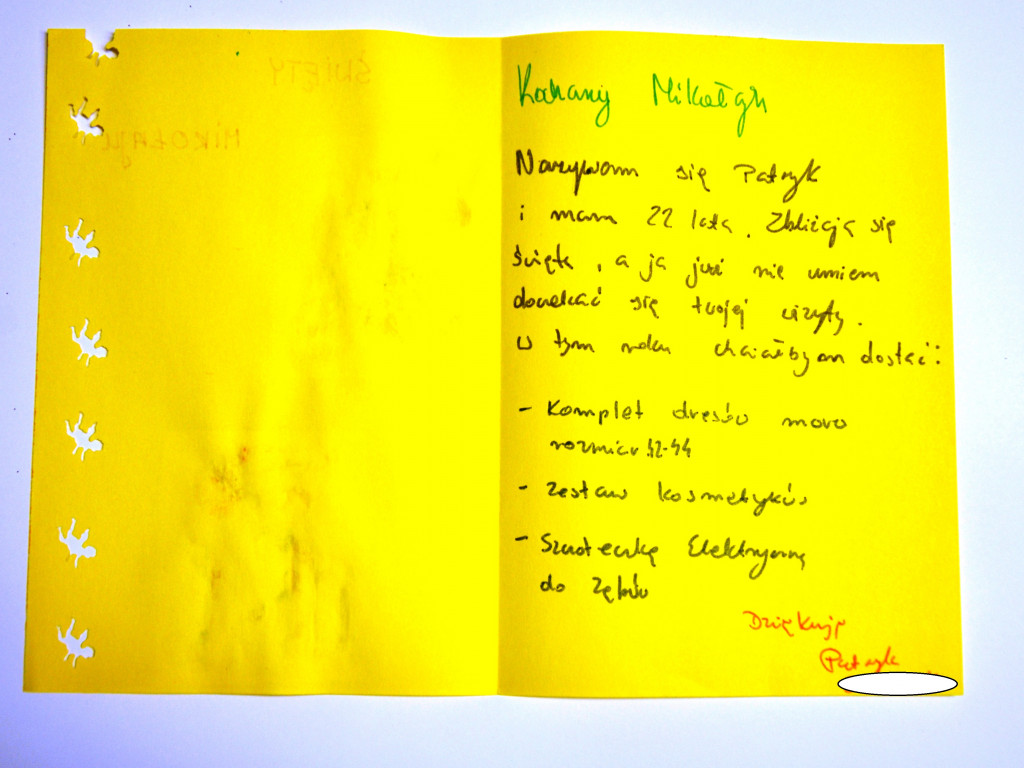 ŚWIĘTY
MIKOŁAJU
Kochany Mikołaju
Nazywam się Patryk
i mam 22 lata. Zbliżają się
święta, a ja już nie umiem
doczekać się twojej wizyty.
W tym roku chciałbym dostać:
- Komplet dresów moro
rozmiar 42-44
- Zestaw kosmetyków
- Szczoteczkę Elektryczną
do Zębów
Dziękuję
Patryk